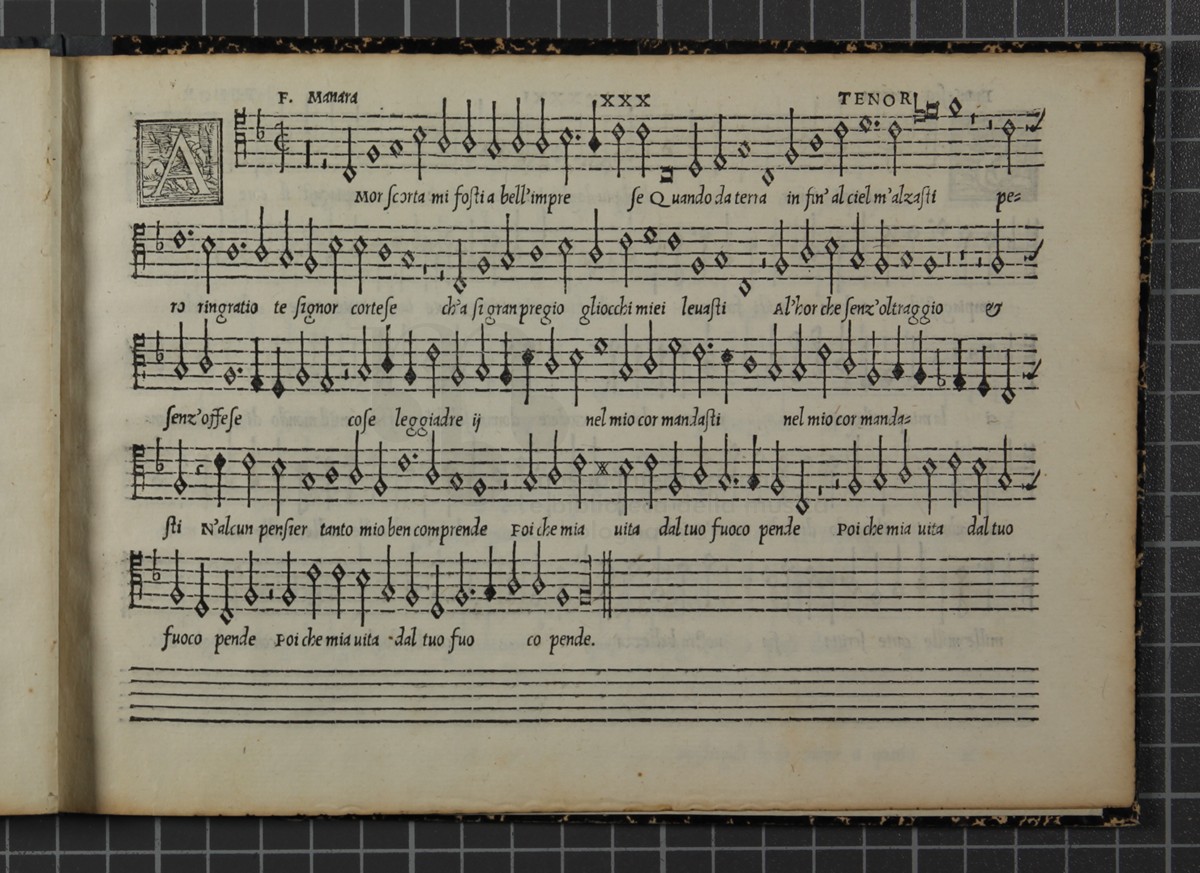 F. Manara XXX TENOR
AMor scorta mi fosti a bell'impre se Quando da terra in fin' al ciel m'alzasti pe=
ro ringratio te signor cortese ch'a si gran pregio gliocchi miei leuasti Al'hor che senz'oltraggio &
senz'offese cose leggiadre ij nel mio cor mandasti nel mio cor manda=
sti N'alcun pensier tanto mio ben comprende Poi che mia uita dal tuo fuoco pende Poi che mia uita dal tuo
fuoco pende Poi che mia uita dal tuo fuo co pende.